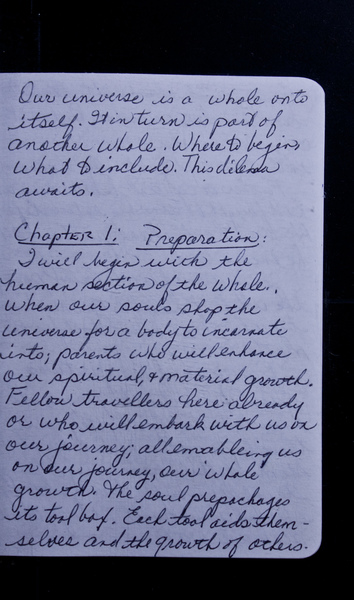 Our universe is a whole onto
itself. It in turn is part of
another whole. Where to begin,
what to include. This dilema
awaits.
Chapter 1: Preparation:
I will begin with the
human section of the whole.
When our souls shop the
universe for a body to incarnate
into; parents who will enhance
our spiritual, & material growth.
Fellow travellers here already
or who will embark with us on
our journey; all emableing us
on our journey, our whole
growth. The soul prepackages
its tool box. Each tool aids them-
selves and the growth of others.